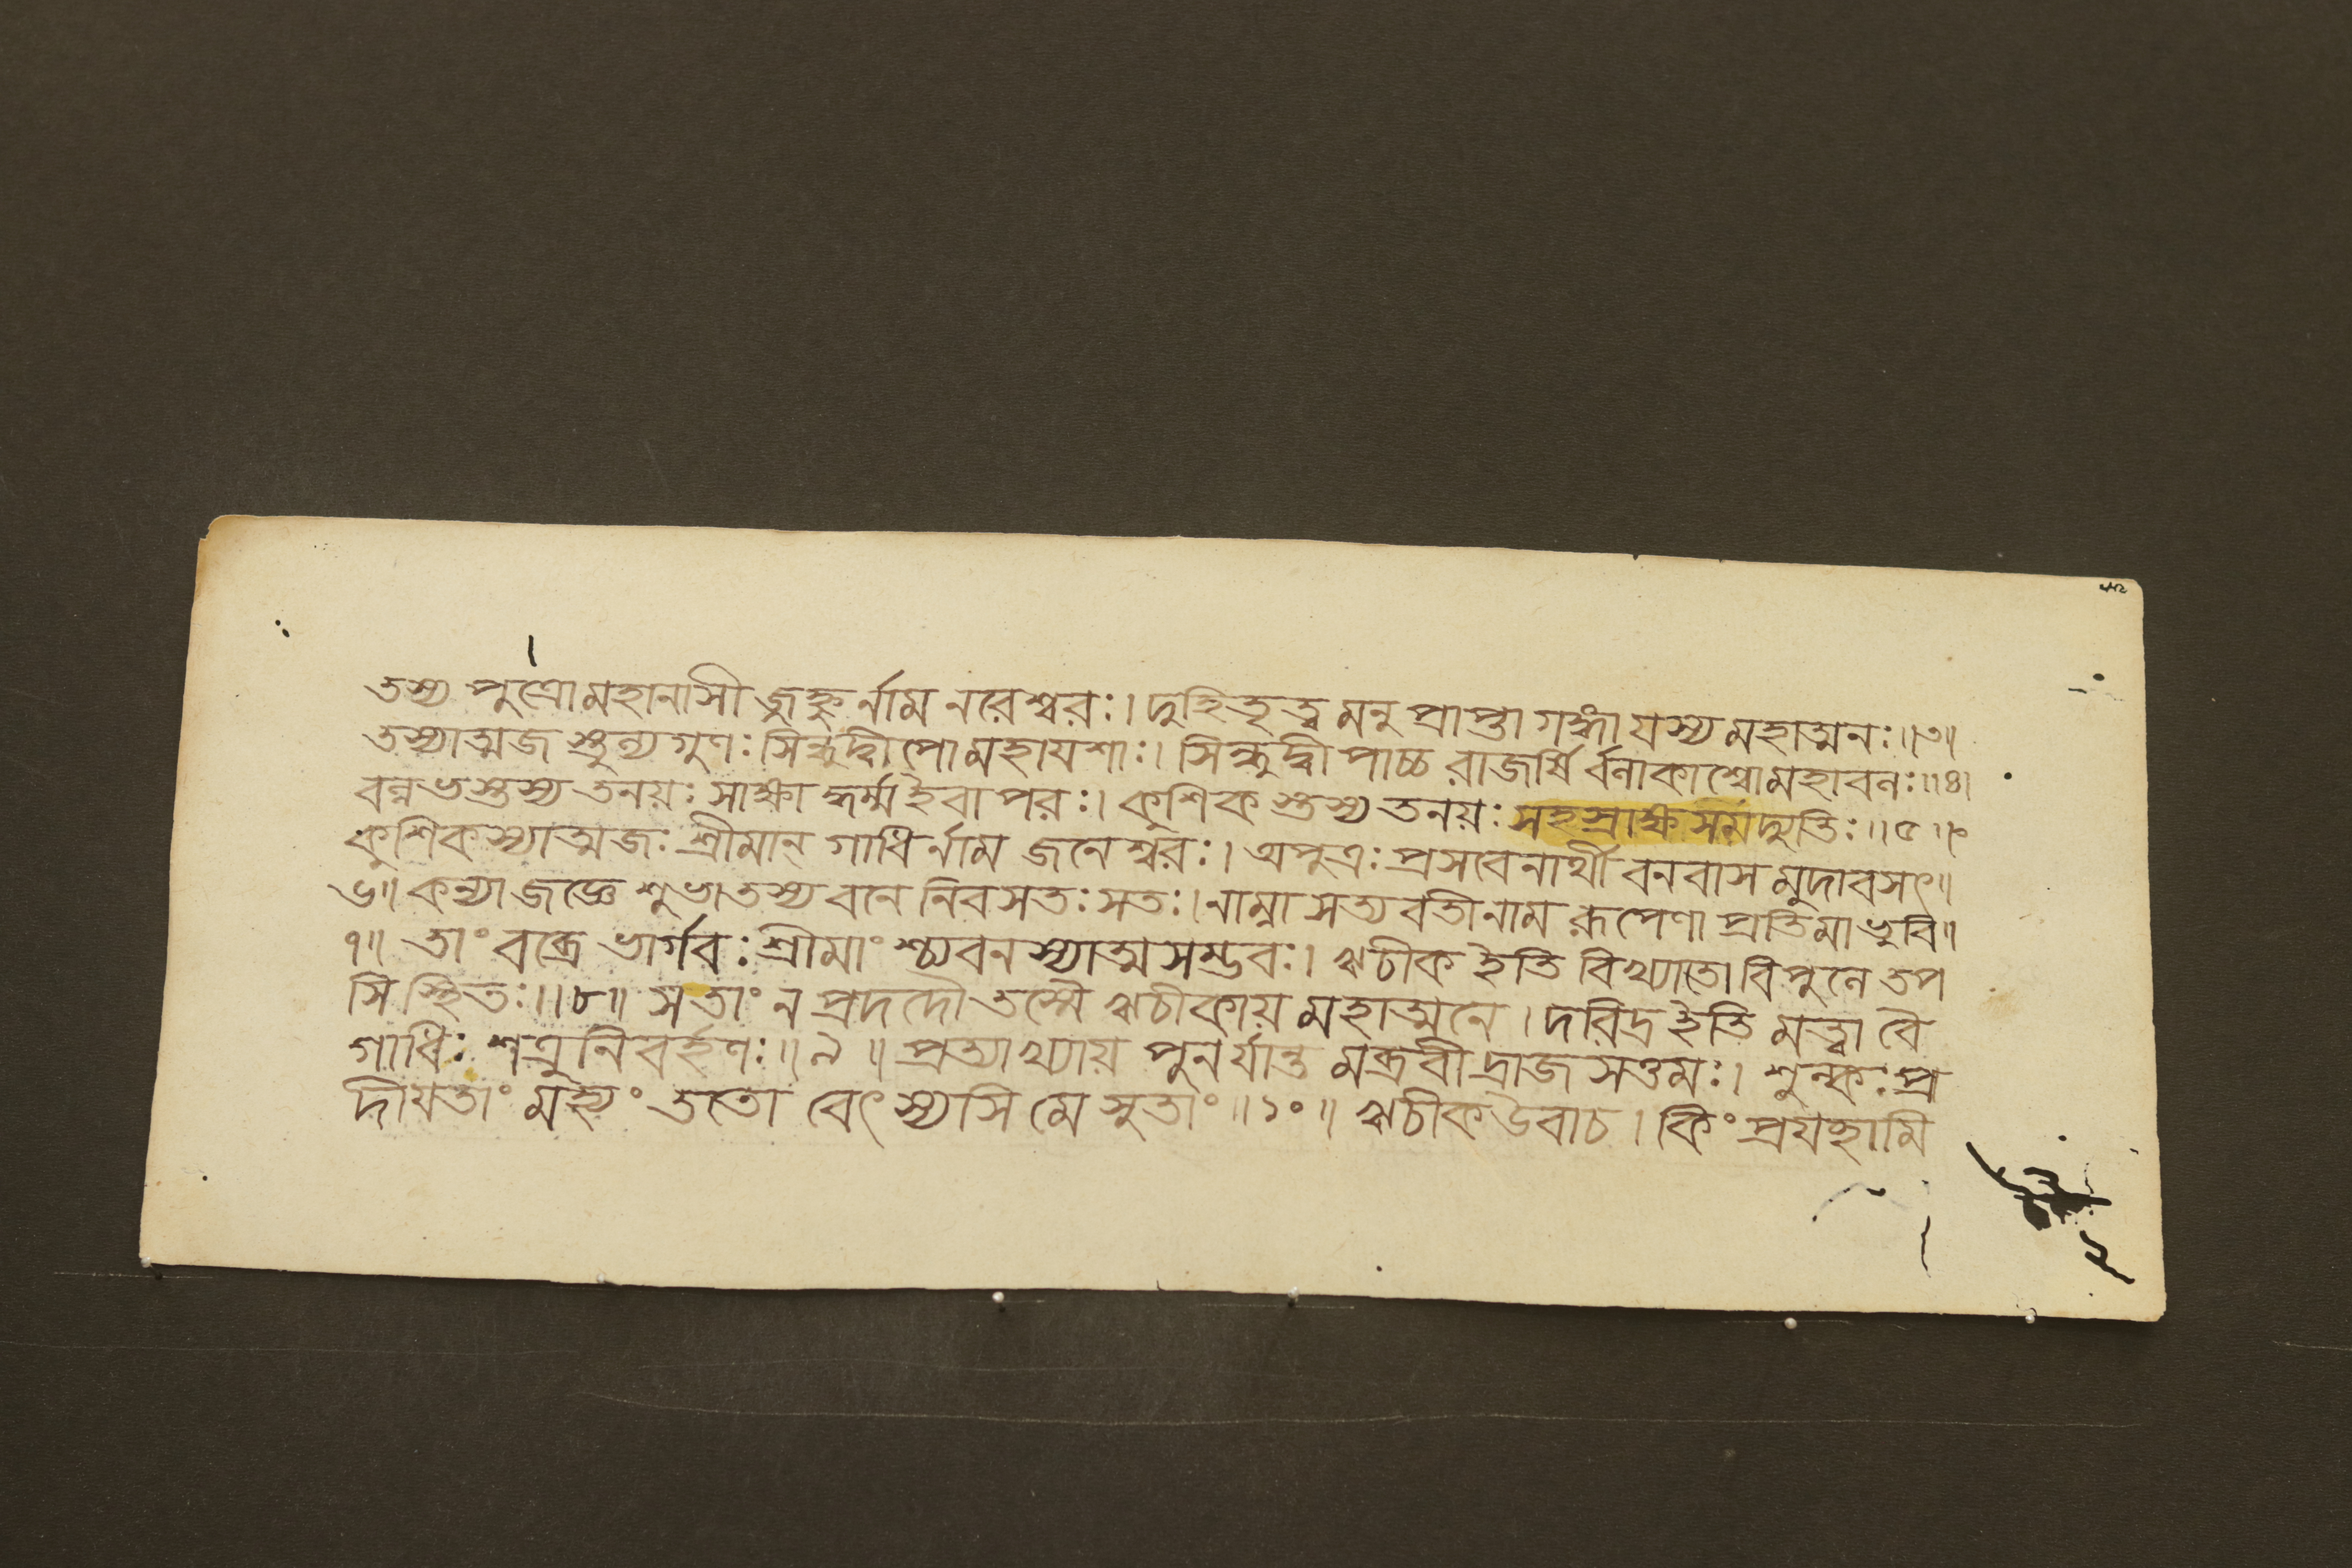 তস্য পুত্রোমহানাসীজ্জহ্নুর্নাম নরেশ্বরঃ। দুহিতৃত্বমনুপ্রাপ্তা গঙ্গা যস্য মহাত্মনঃ॥৩॥
তস্যাত্মজস্তুল্যগুণঃ সিন্ধুদ্বীপো মহাযশাঃ। সিন্ধুদ্বীপাচ্চ রাজর্ষির্বলাকাশ্বোমহাবলঃ॥৪॥
বল্লভস্তস্য তনয়ঃ সাক্ষাদ্ধর্ম্ম ইবাপরঃ। কুশিকস্তস্য তনয়ঃ সহস্রাক্ষসমদ্যুতিঃ॥৫॥
কুশিকস্যাত্মজঃ শ্রীমান্ গাধির্নাম জনেশ্বরঃ। অপুত্রঃ প্রসবেনার্থী বনবাসমুদাবসৎ॥
৬॥ কন্যা জজ্ঞে শুভা তস্য বনে নিবসতঃ সতঃ। নাম্না সত্যবতী নাম রূপেণাপ্রতিমা ভুবি॥
৭॥ তাং বব্রে ভার্গবঃ শ্রীমাংশ্চ্যবনস্যাত্মসম্ভবঃ। ঋচীক ইতি বিখ্যাতো বিপুলে তপ
সি স্থিতঃ॥৮॥ স তাং ন প্রদদৌ তস্মৈ ঋচীকায় মহাত্মনে। দরিদ্র ইতি মত্বা বৈ
গাধিঃ শত্রুনিবর্হণঃ॥৯॥ প্রত্যাখ্যায় পুনর্যান্তমব্রবীদ্রাজসত্তমঃ। শুল্কঃ প্র
দীয়তাং মহ্যং ততো বেৎস্যসি মে সুতাং॥১০॥ ঋচীক উবাচ। কিং প্রযচ্ছামি
২